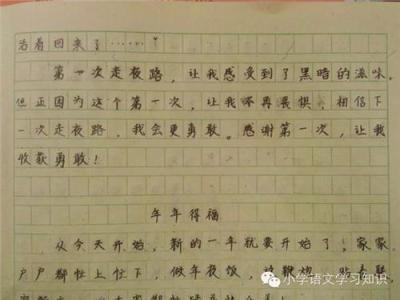 活着回来了……"
第一次走夜路，让我感受到了黑暗的滋味。
但正因为这个第一次，让我不再畏惧，相信下
一次走夜路，我会更勇敢。感谢第一次，让我
收获勇敢！
年年得福
从今天开始，新的一年就要开始了！家家
户户都忙上忙下，做年夜饭，
小学语文学习知识